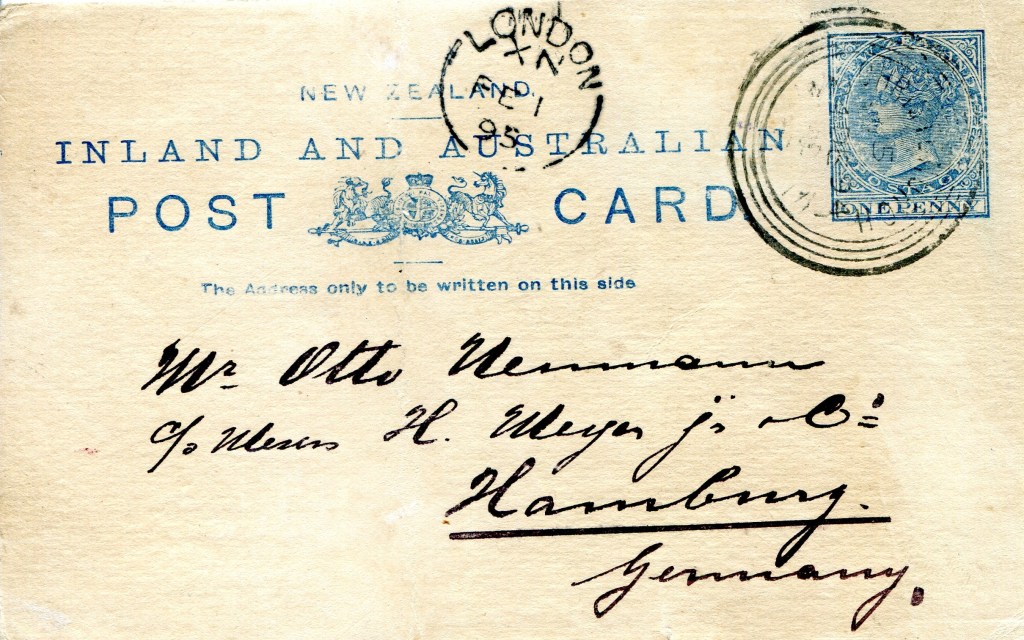 LONDON
X Z
FE 1
95
NEW ZEALAND.
INLAND AND AUSTRALIAN
POST CARD
ONE PENNY
The Address only to be written on this side
Mr. Otto Neumann
c/o Messrs H. Meyer jr & Co.
Hamburg.
Germany.